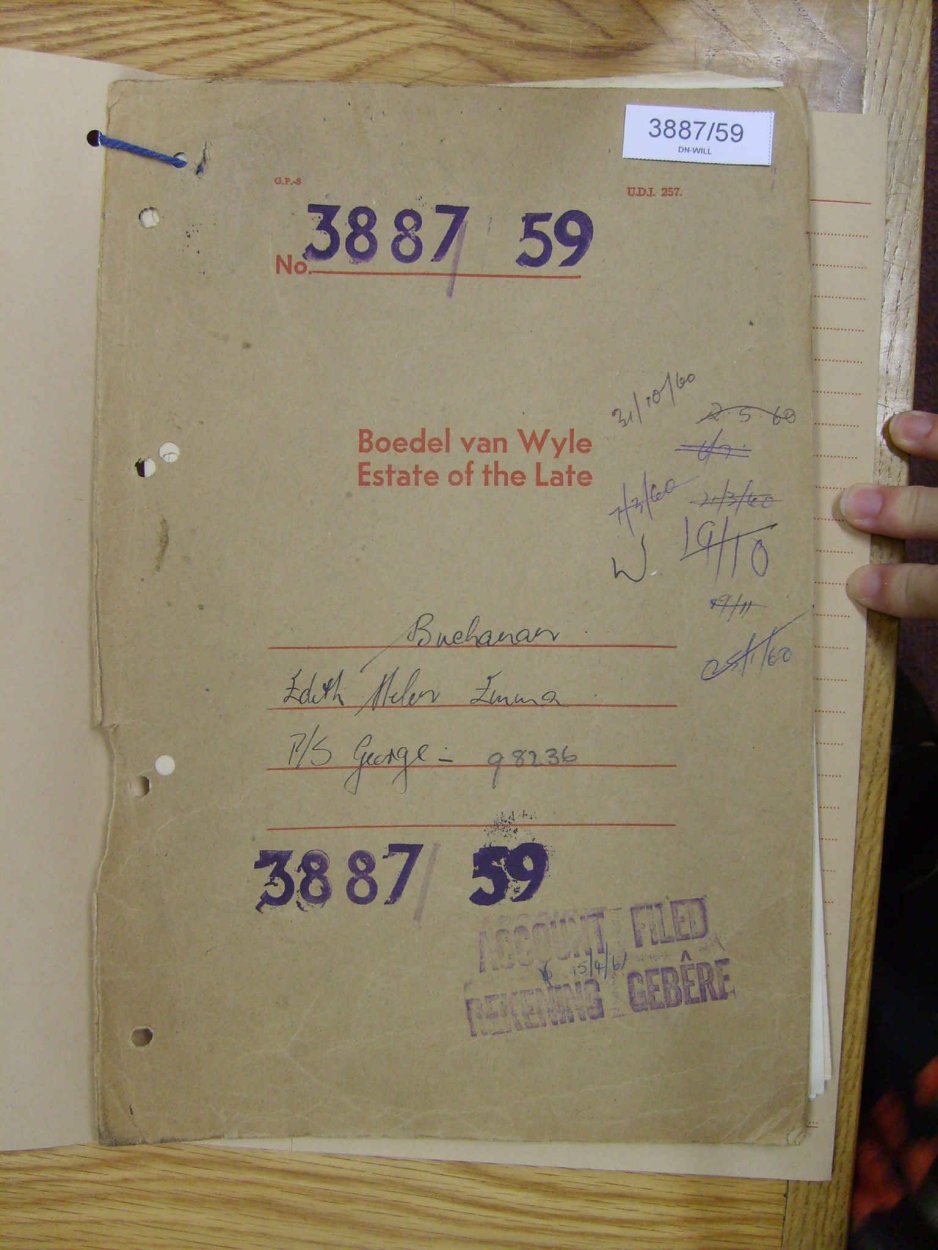 3887/59
DN-WILL
G.P.-S
U.D.J. 257.
No. 3887/59
31/10/60
2 5 60
Boedel van Wyle
Estate of the Late
21/3/60
W.
19/10
19/11
Buchanan
Edith Helen Emma
P/S George - 98236
3887/59
ACCOUNT FILED
15/4/61
REKENING GEBÊRE